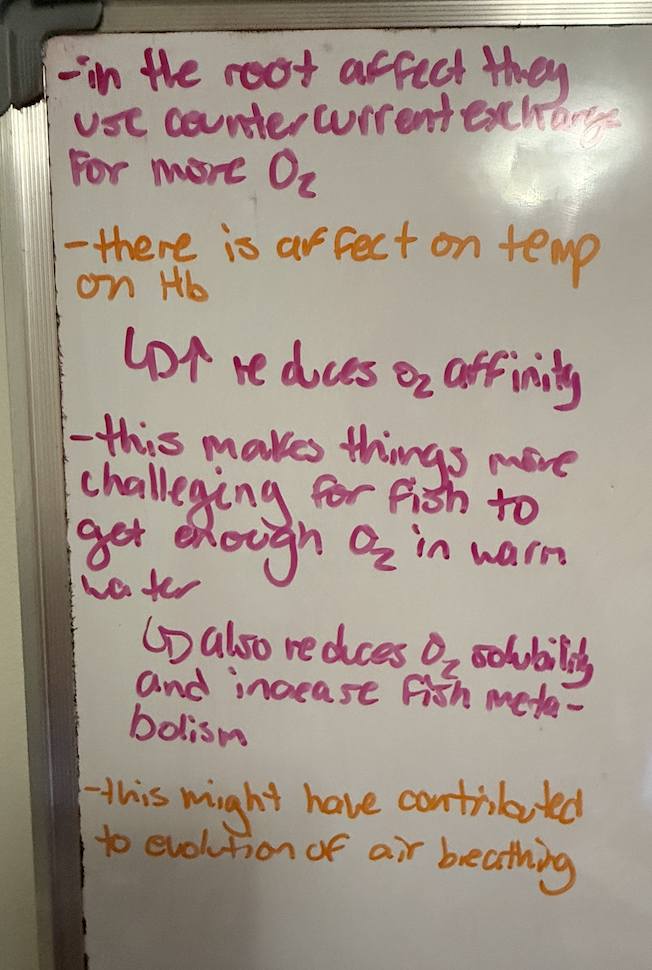 -in the root affect they
use countercurrent exchange
For more O₂
-there is affect on temp
on Hb
↳↑ reduces O₂ affinity
-this makes things more
challeging for fish to
get enough O₂ in warm
water
↳ also reduces O₂ solubility
and increase fish meta-
bolism
-this might have contributed
to evolution of air breathing